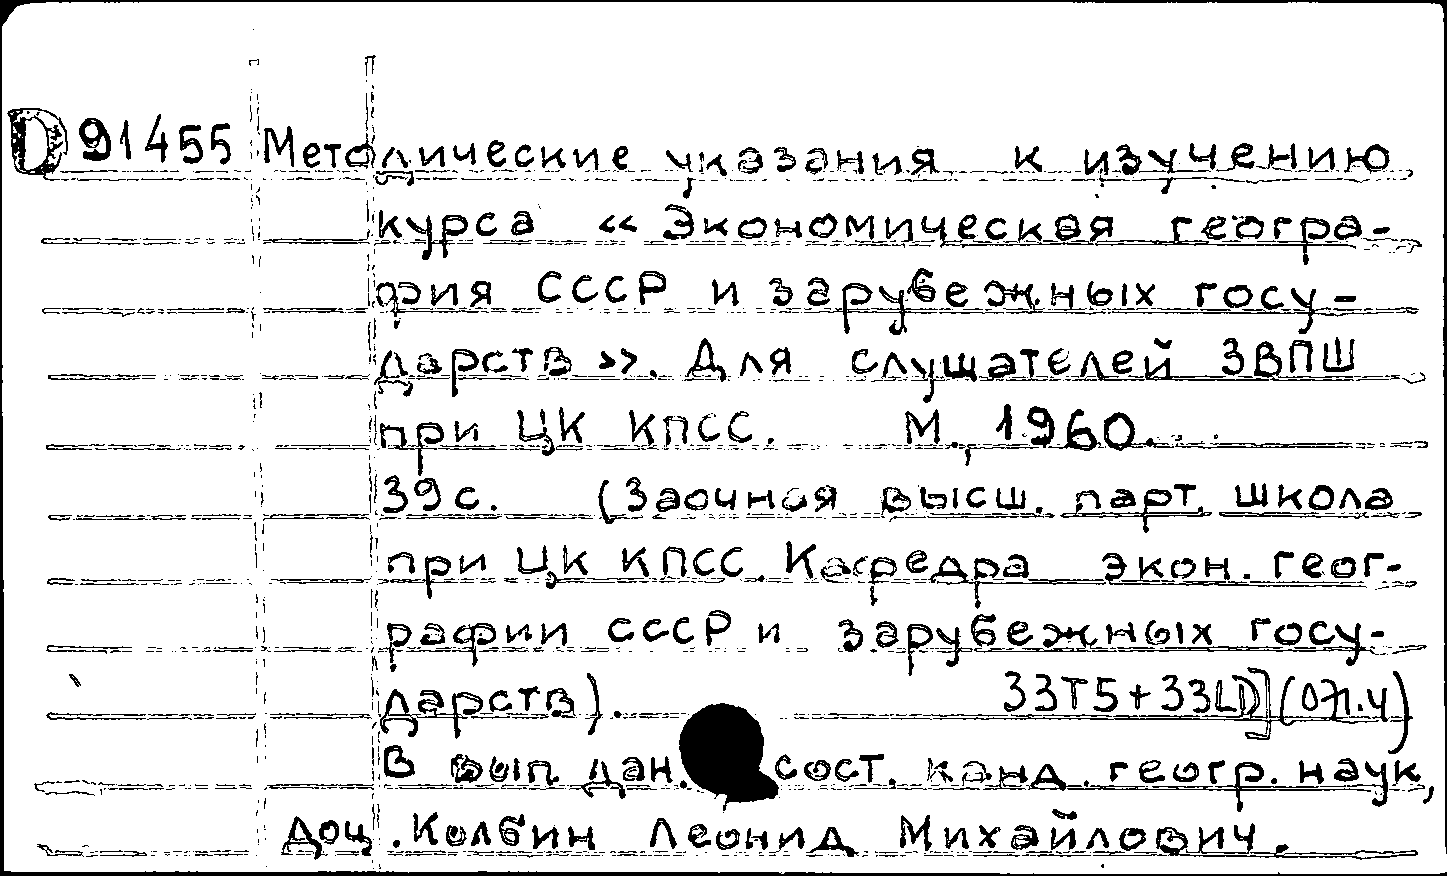 D 91455 Методические указания к изучению
курса «Экономическая геогра-
фия СССР и зарубежных госу-
дарств». Для слушателей ЗВПШ
при ЦК КПСС. М., 1960.
39 с. (Заочная высш. парт. школа
при ЦК КПСС. Кафедра экон. геог-
рафии СССР и зарубежных госу-
дарств).
В вып. дан. сост. канд. геогр. наук,
доц. Колбин Леонид Михайлович.